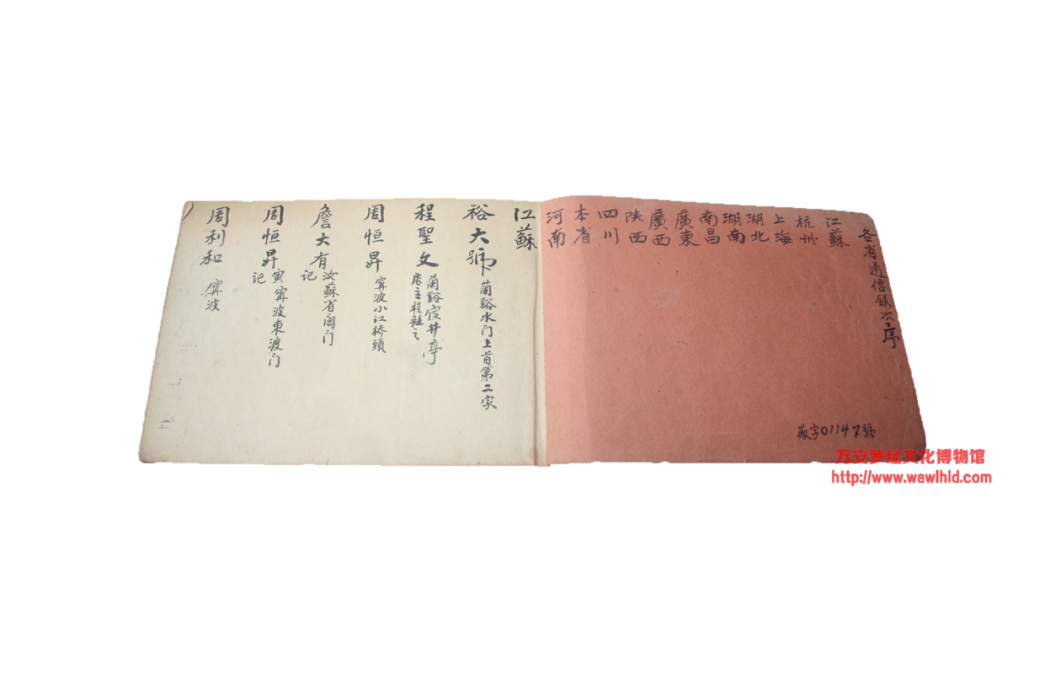 各省通信錄次序
江蘇
杭州
上海
湖北
湖南
南昌
廣東
廣西
陕西
四川
本省
河南
江蘇
裕大號 蘭谿水门上首第二家
程聖文 蘭谿 井亭
周恒昇 寧波小江桥頭
詹大有记 汝蘇省阊门
周恒昇记 寅寧波東渡门
周利和 寧波
01147號
万安罗经文化博物馆
http://www.wawlhld.com